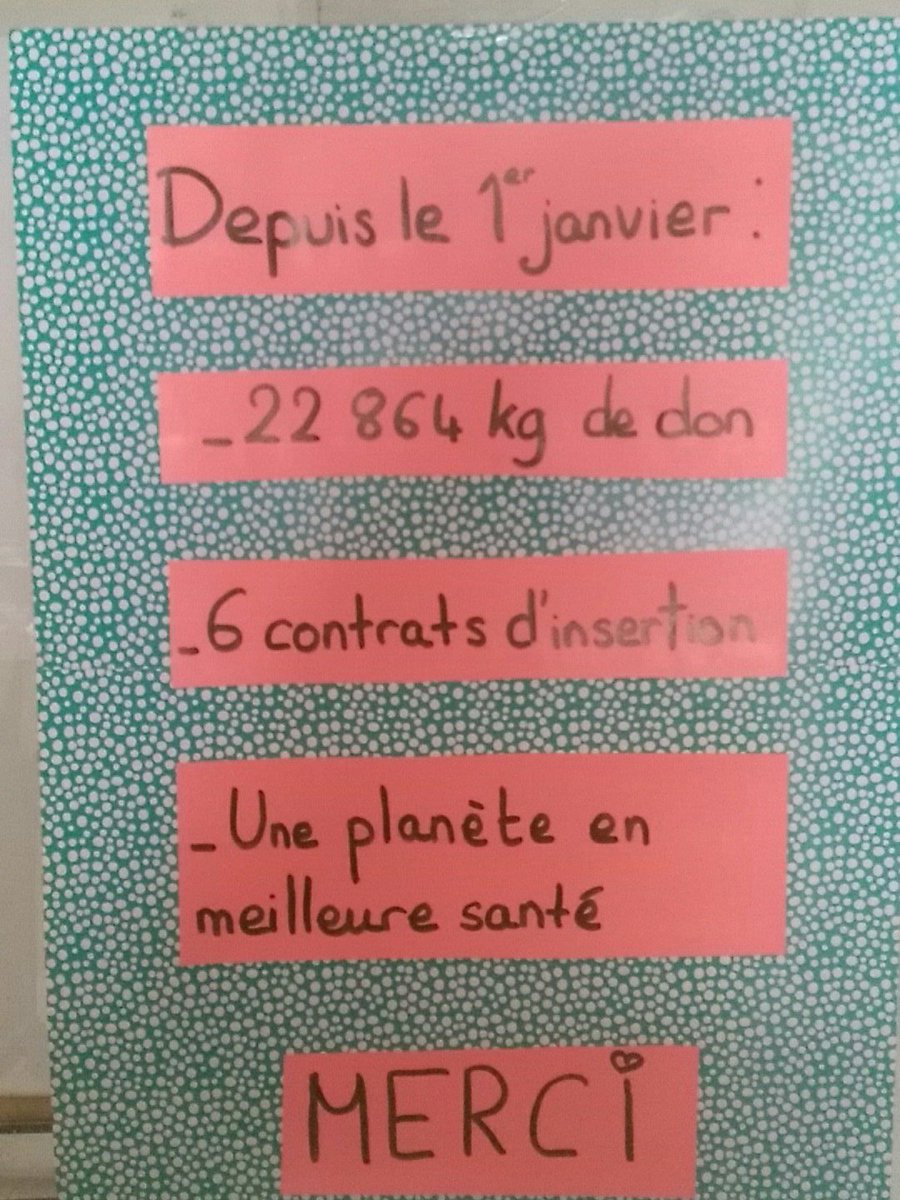 Depuis le 1er janvier :
_22 864 kg de don
_6 contrats d'insertion
_Une planète en
meilleure santé
MERCi